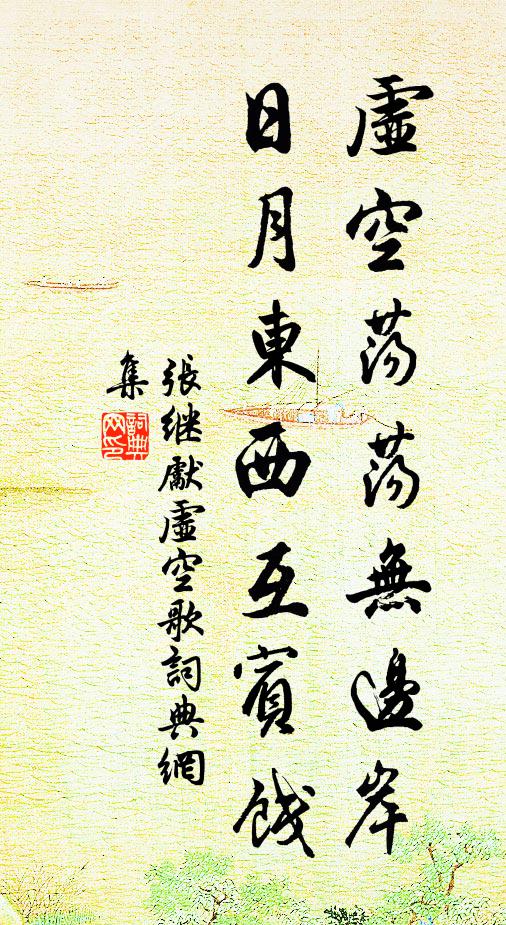 虛空荡荡無邊岸
日月東西互賓餞
張继獻虛空歌詞典網
集
詞典
网印